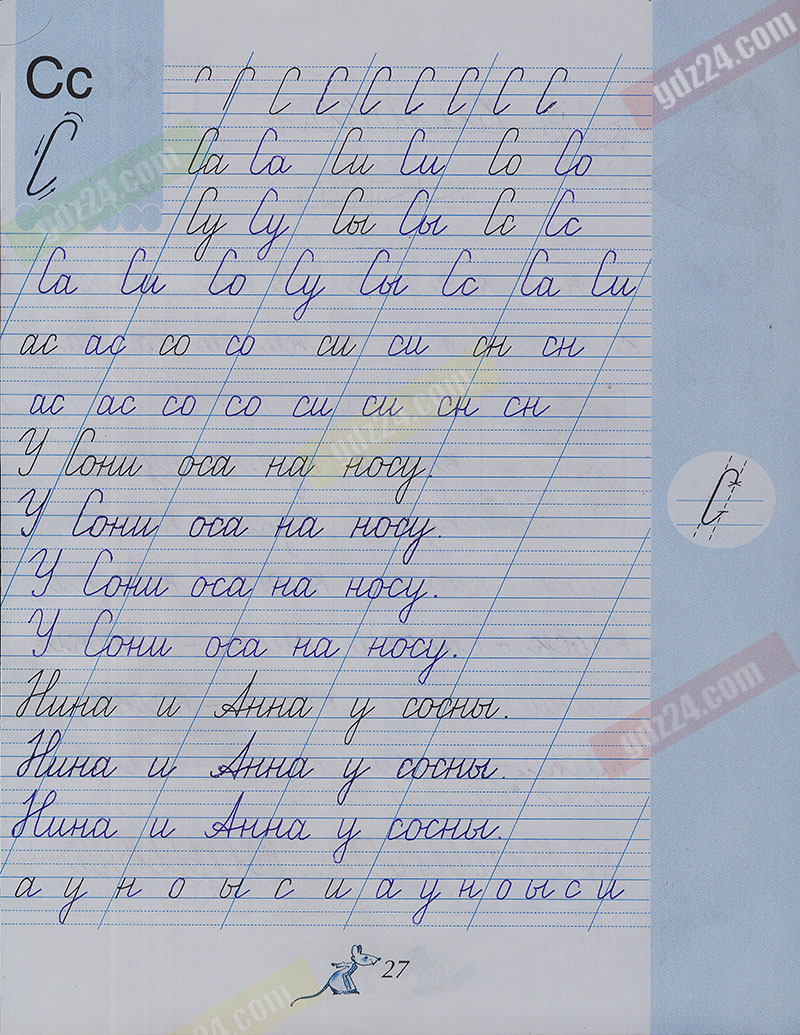 Сс
gdz24.com
С С С С С С С С С
С
Са Са Си Си Со Со
gdz24.com
Су Су Сы Сы Сс Сс
Са Си Со Су Сы Сс Са Си
ас ас со со си си сн сн
ас ас со со си си сн сн
gdz24.com
У Сони оса на носу.
С
У Сони оса на носу.
У Сони оса на носу.
У Сони оса на носу.
Нина и Анна у сосны.
gdz24.com
Нина и Анна у сосны.
Нина и Анна у сосны.
а у н о ы с и а у н о ы с и
27
gdz24.com